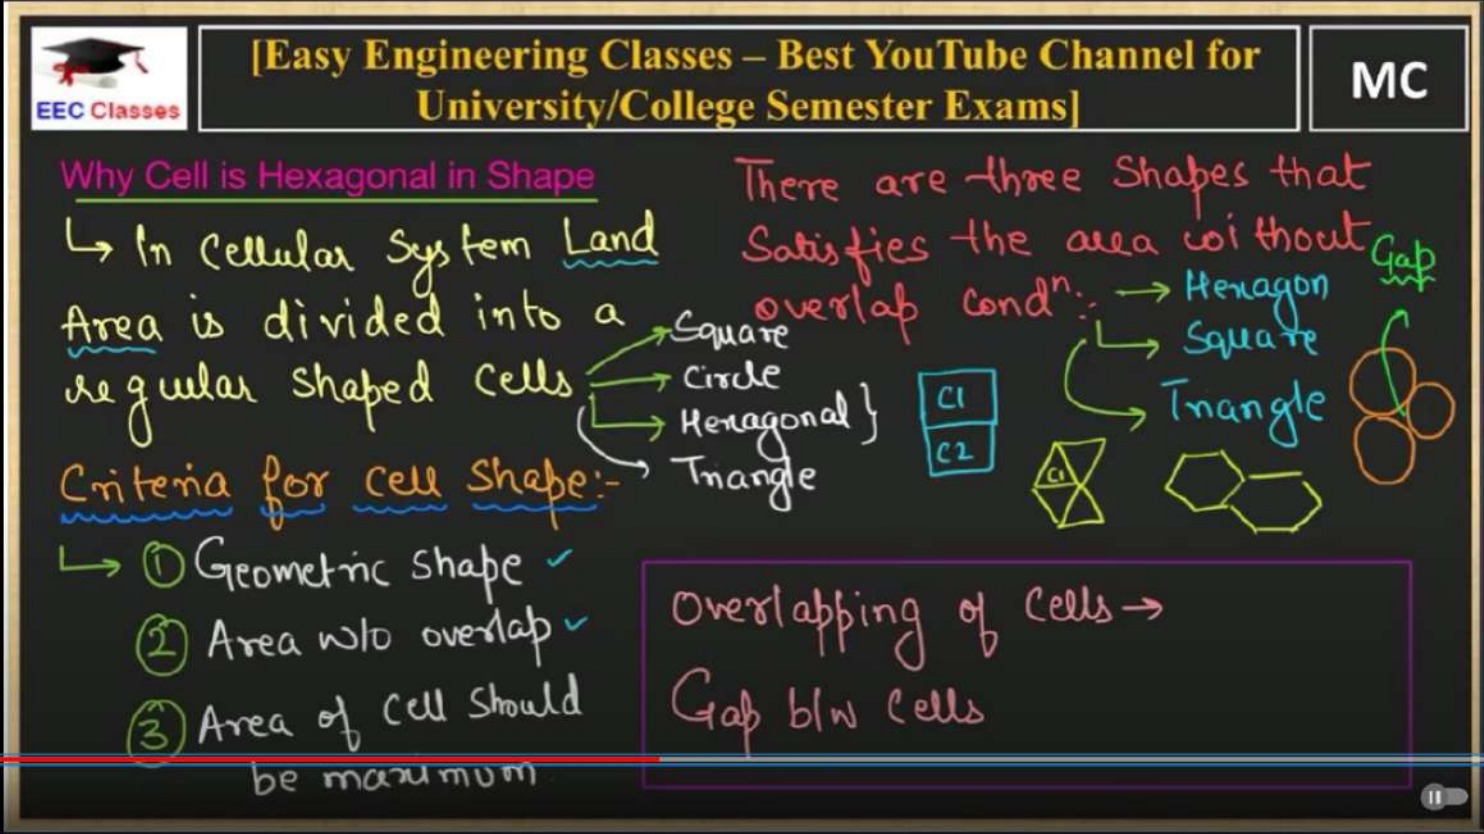 EEC Classes
[Easy Engineering Classes – Best YouTube Channel for
University/College Semester Exams]
MC
Why Cell is Hexagonal in Shape
↳ In Cellular System Land
Area is divided into a
regular shaped cells
→ Square
→ Circle
→ Hexagonal }
→ Triangle
Criteria for cell shape:-
↳ ① Geometric shape ✓
② Area w/o overlap ✓
③ Area of cell should
be maximum
There are three shapes that
Satisfies the area without
overlap condⁿ:-
→ Hexagon
→ Square
→ Triangle
Gap
C1
C2
C1
Overlapping of cells →
Gap b/w cells